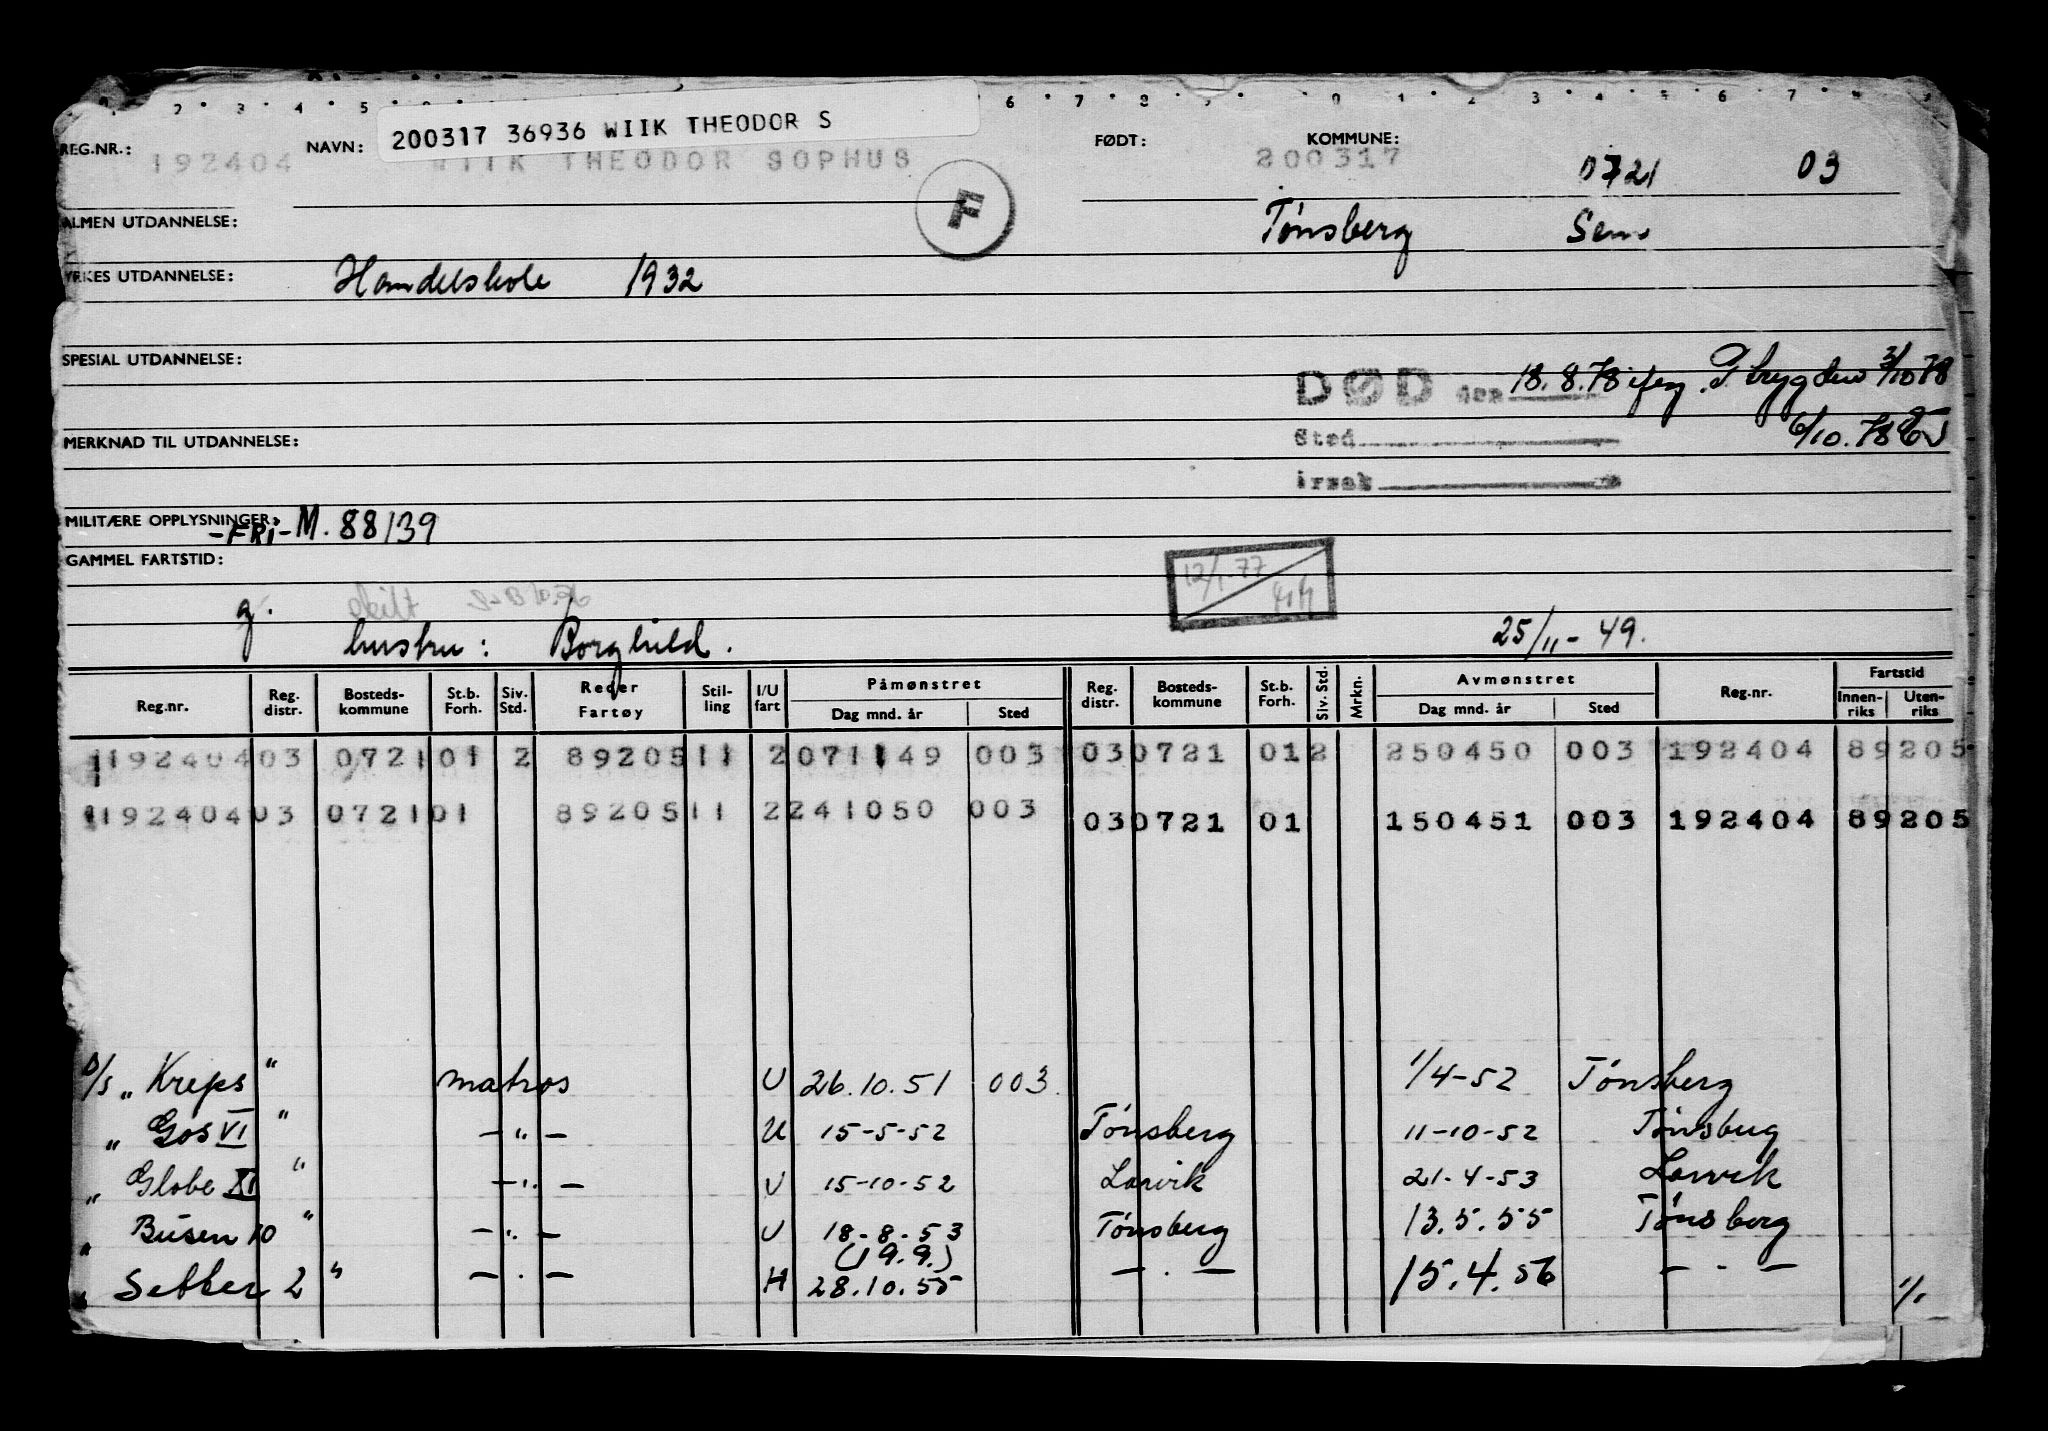 200317 36936 WIIK THEODOR S
REG.NR.: 192404 NAVN: WIIK THEODOR SOPHUS FØDT: 200317 KOMMUNE: 0721 03
F
ALMEN UTDANNELSE: Tønsberg Sem
YRKES UTDANNELSE: Handelskole 1932
SPESIAL UTDANNELSE:
DØD den 18.8.78 3/10 78
MERKNAD TIL UTDANNELSE: Sted 6/10.78
årsak
MILITÆRE OPPLYSNINGER: -FRI- M. 88/39
GAMMEL FARTSTID:
12/1-77
g. skilt
hustru: Borghild. 25/11-49.
Reg.nr. Reg. distr. Bosteds-kommune St.b. Forh. Siv. Std. Reder Fartøy Stil-ling I/U fart Påmønstret Dag mnd. år Sted Reg. distr. Bosteds-kommune St.b. Forh. Siv. Std. Mrkn. Avmønstret Dag mnd. år Sted Reg.nr. Fartstid Innen-riks Uten-riks
1192404 03 0721 01 2 89205 11 2 071149 003 03 0721 01 2 250450 003 192404 89205
1192404 03 0721 01 89205 11 2 241050 003 03 0721 01 150451 003 192404 89205
D/S " Kreps " matros U 26.10.51 003. 1/4-52 Tønsberg
" Gos VI " - " - U 15-5-52 Tønsberg 11-10-52 Tønsberg
" Globe XI " - " - U 15-10-52 Larvik 21-4-53 Larvik
" Busen 10 " - " - U 18-8-53 Tønsberg 13.5.55 Tønsberg
(19.9.)
" Setter 2 " - " - H 28.10.55 - " - 15.4.56 - " - 1/1